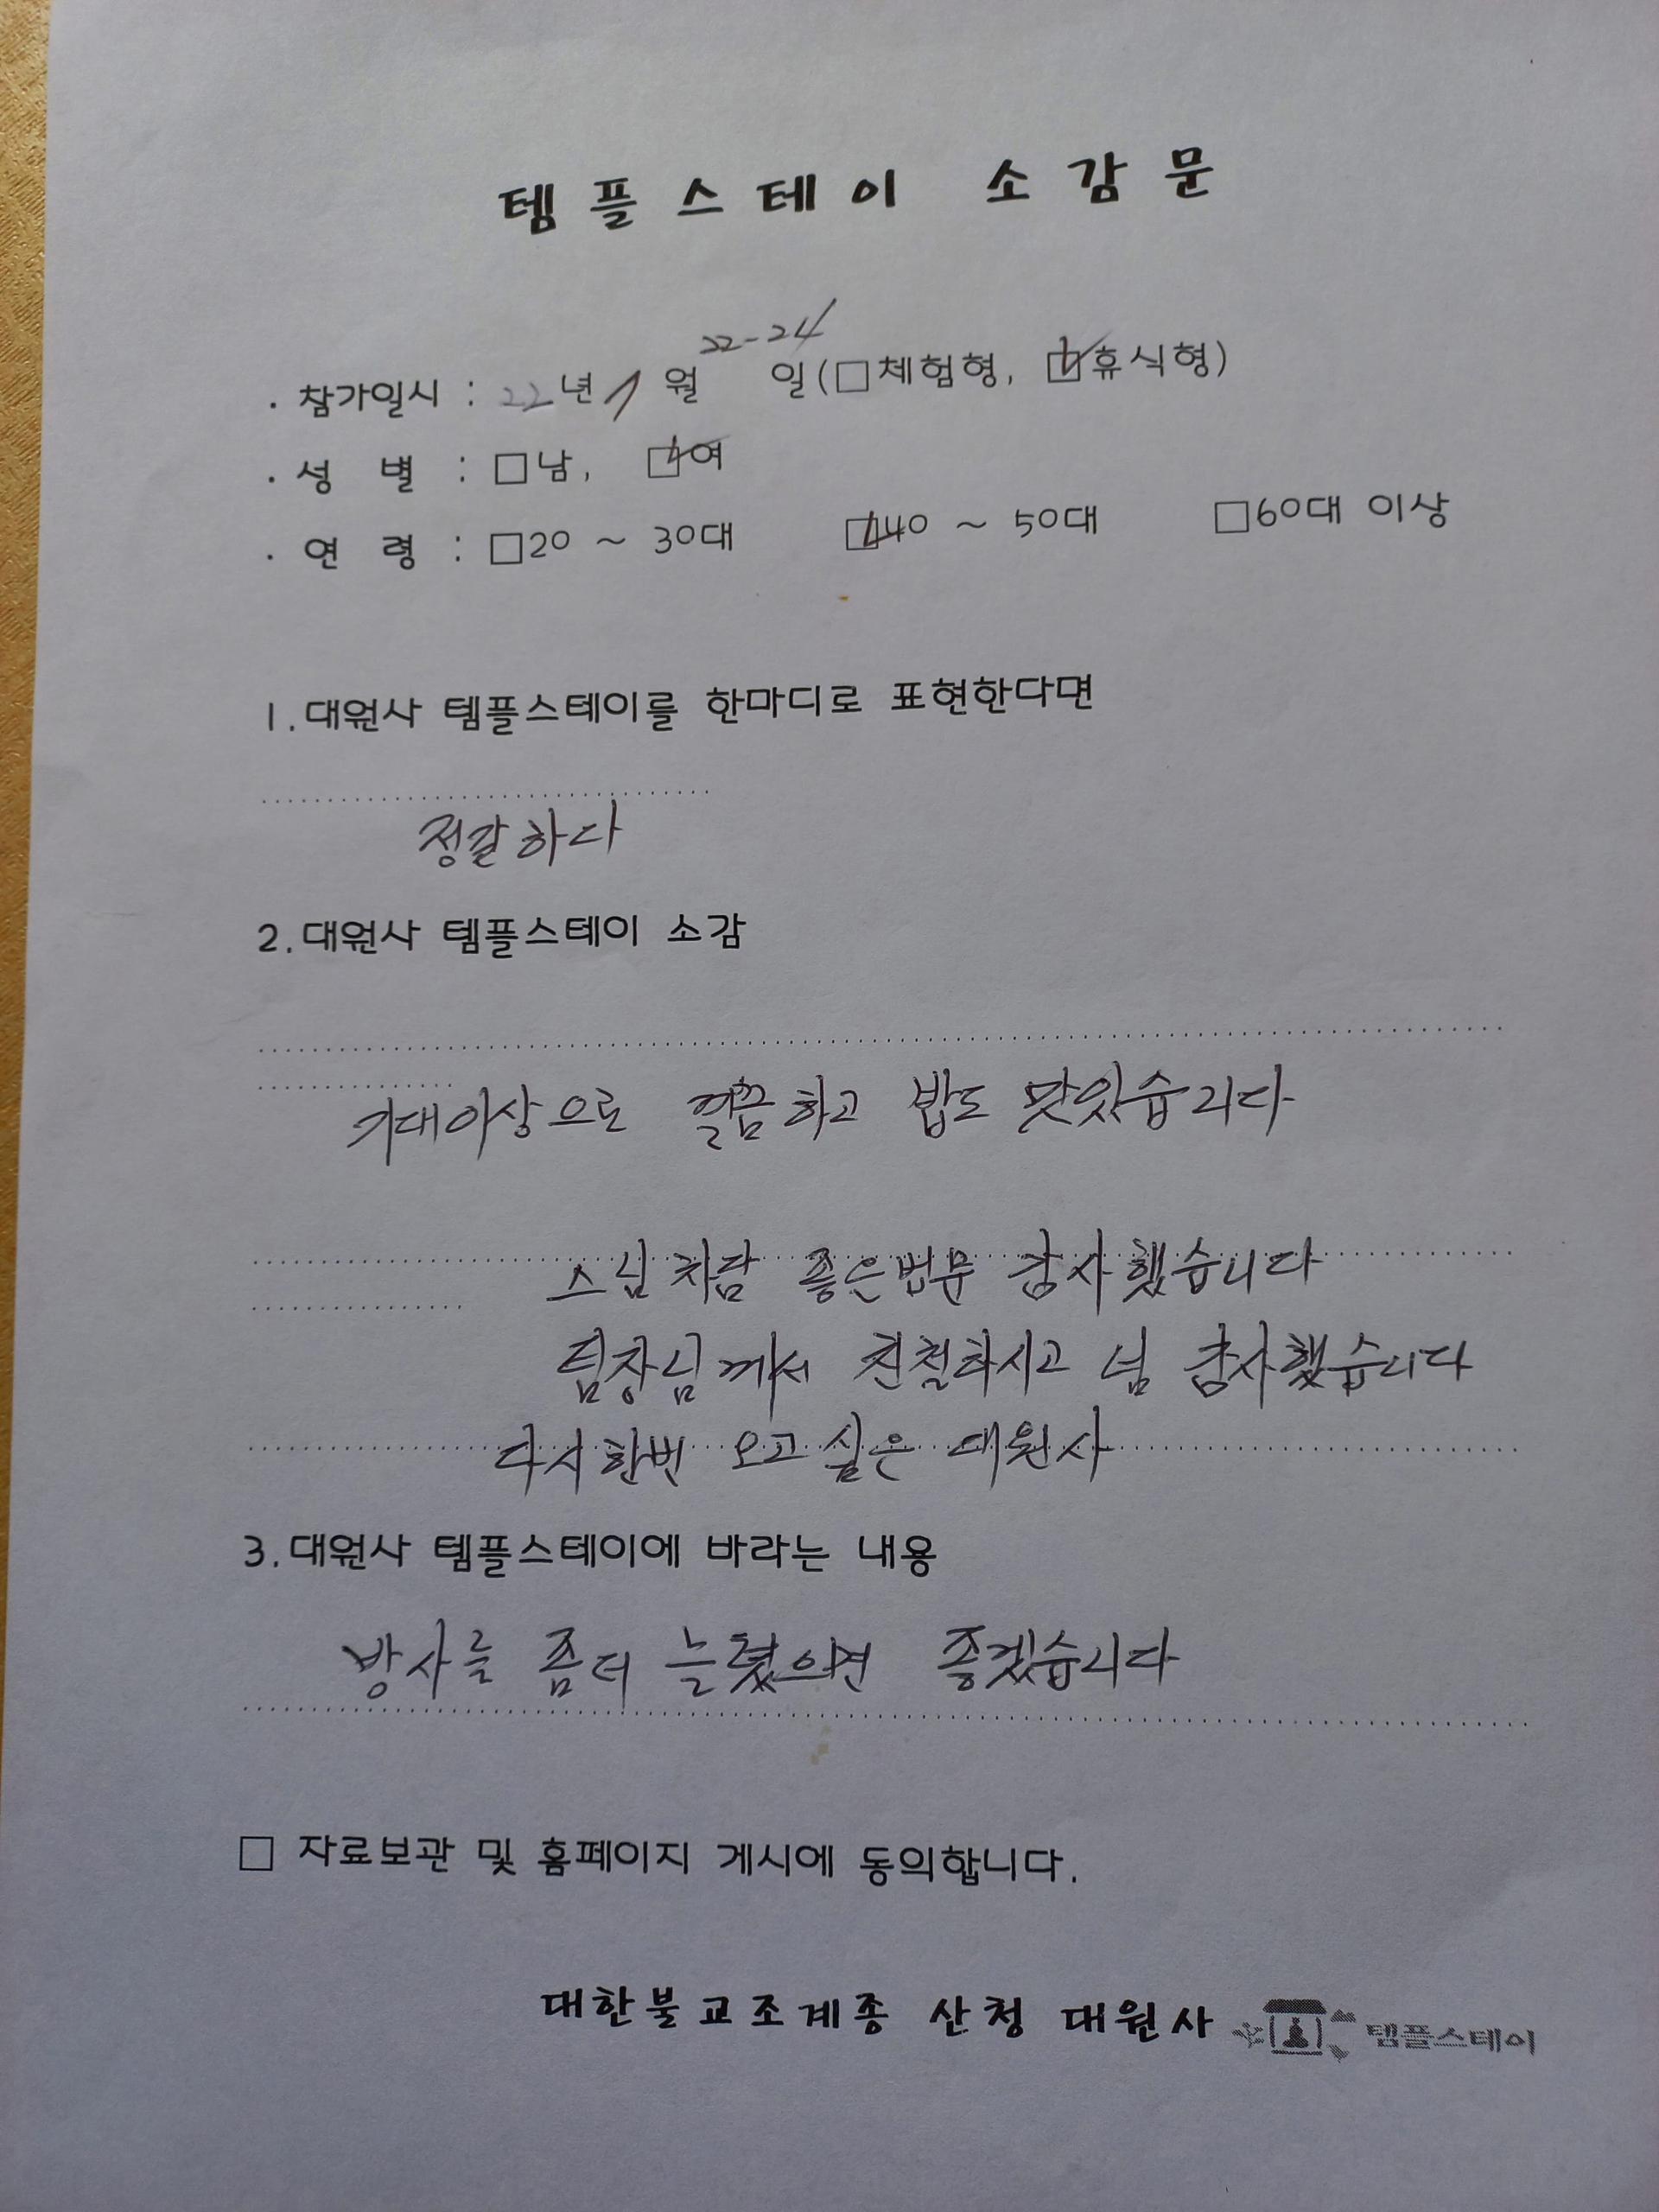 템플스테이 소감문
· 참가일시 : 22년 1월 22-24일(□체험형, ☑휴식형)
· 성 별 : □남, ☑여
· 연 령 : □20 ~ 30대 ☑40 ~ 50대 □60대 이상
1.대원사 템플스테이를 한마디로 표현한다면
정갈하다
2.대원사 템플스테이 소감
기대이상으로 깔끔하고 밥도 맛있습니다
스님차담 좋은법문 감사했습니다
팀장님께서 친절하시고 넘 감사했습니다
다시한번 오고싶은 대원사
3.대원사 템플스테이에 바라는 내용
방사를 좀더 늘렸으면 좋겠습니다
□ 자료보관 및 홈페이지 게시에 동의합니다.
대한불교조계종 산청 대원사 템플스테이